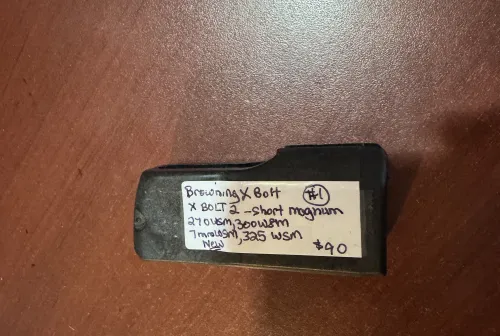 Browning X Bolt #1
X BOLT 2 - short magnum
270WSM, 300WSM
7mmWSM, 325 WSM
New $90